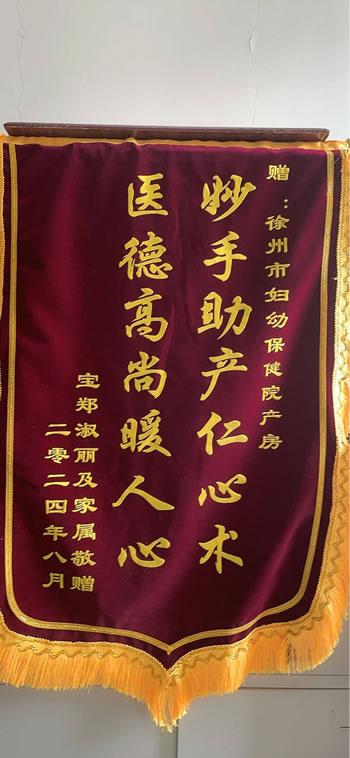 赠：徐州市妇幼保健院产房
妙手助产仁心术
医德高尚暖人心
宝郑淑丽及家属敬赠
二零二四年八月